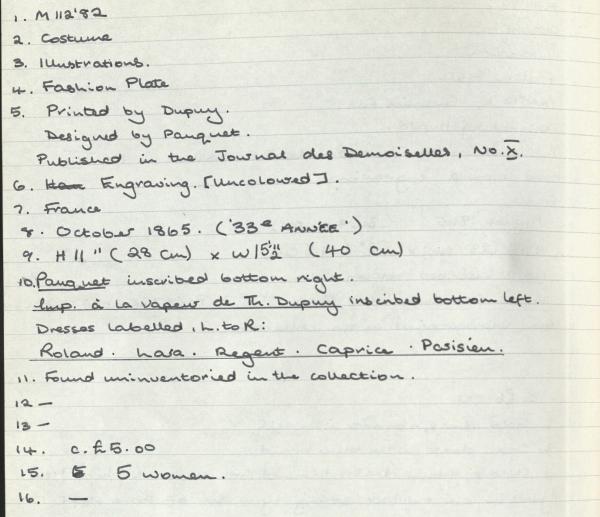 1. M 112'82
2. Costume
3. Illustrations.
4. Fashion Plate
5. Printed by Dupuy.
Designed by Pauquet.
Published in the Journal des Demoiselles, No. X.
6. Engraving. [Uncoloured].
7. France
8. October 1865. ('33e ANNÉE')
9. H 11" (28 cm) x W 15½" (40 cm)
10. Pauquet inscribed bottom right.
Imp. à la vapeur de Th. Dupuy inscribed bottom left.
Dresses labelled, L. to R:
Roland. Lara. Regent. Caprice. Parisien.
11. Found uninventoried in the collection.
12 —
13 —
14. c. £5.00
15. 5 women.
16. —